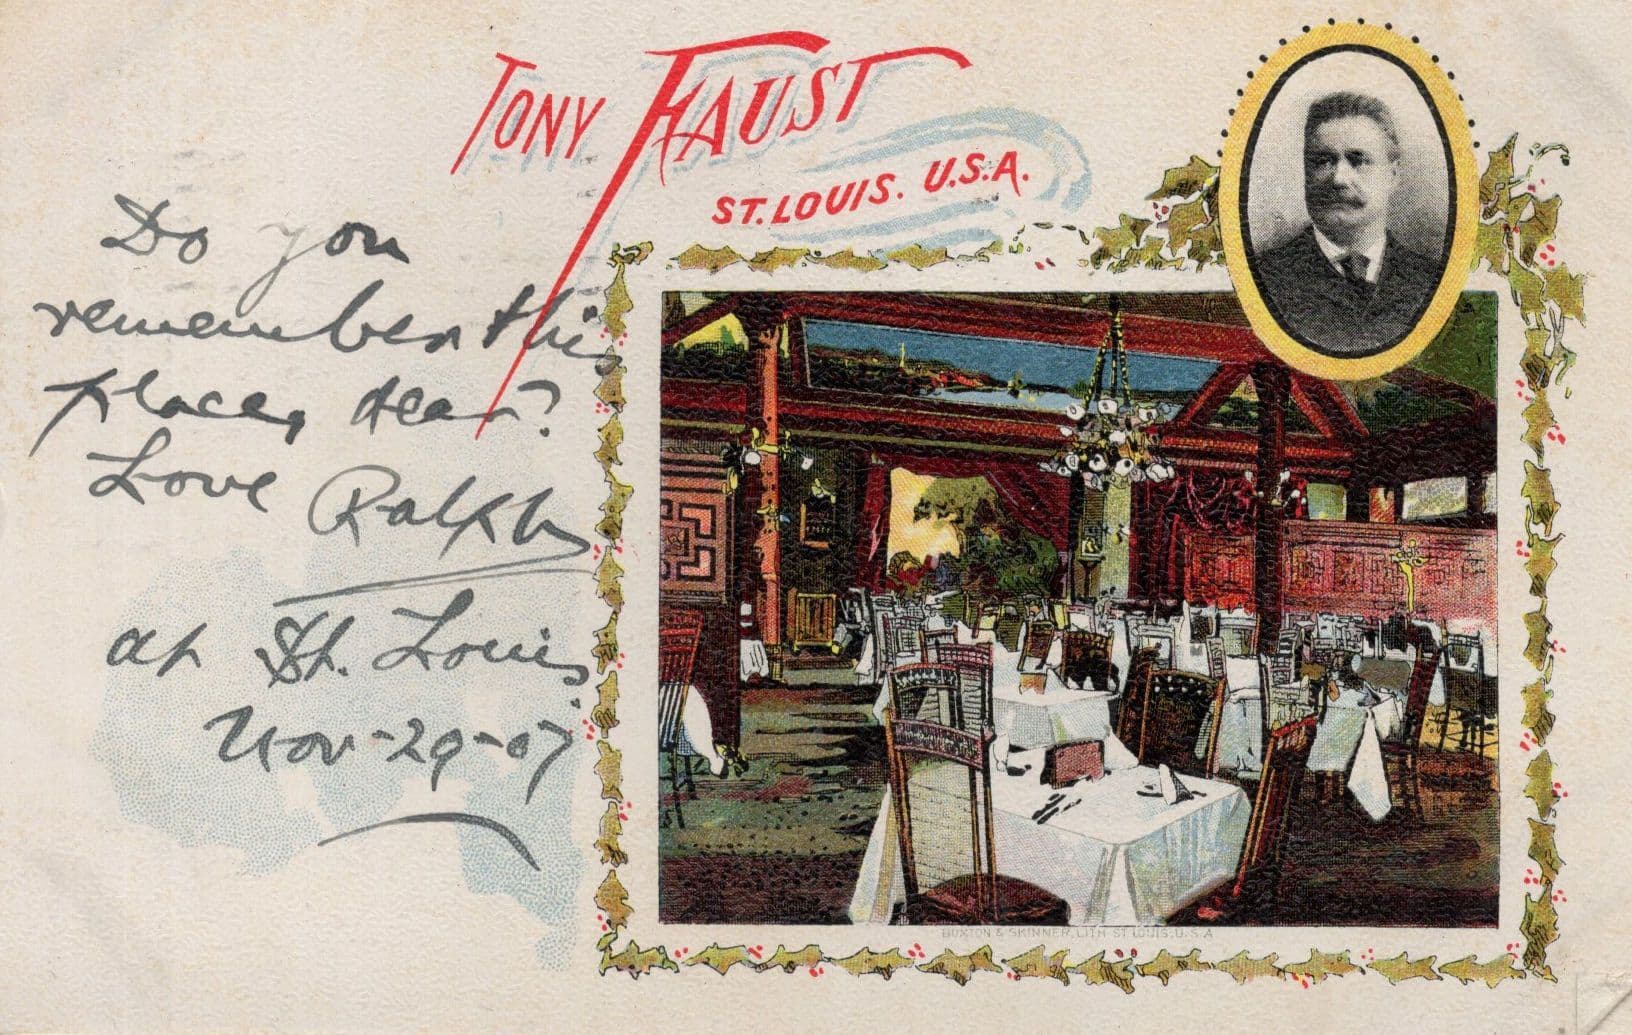 TONY FAUST
ST. LOUIS. U.S.A.
Do you
remember this
place, dear?
Love Ralph
at St. Louis
Nov-29-07
BUXTON & SKINNER, LITH. ST. LOUIS, U.S.A